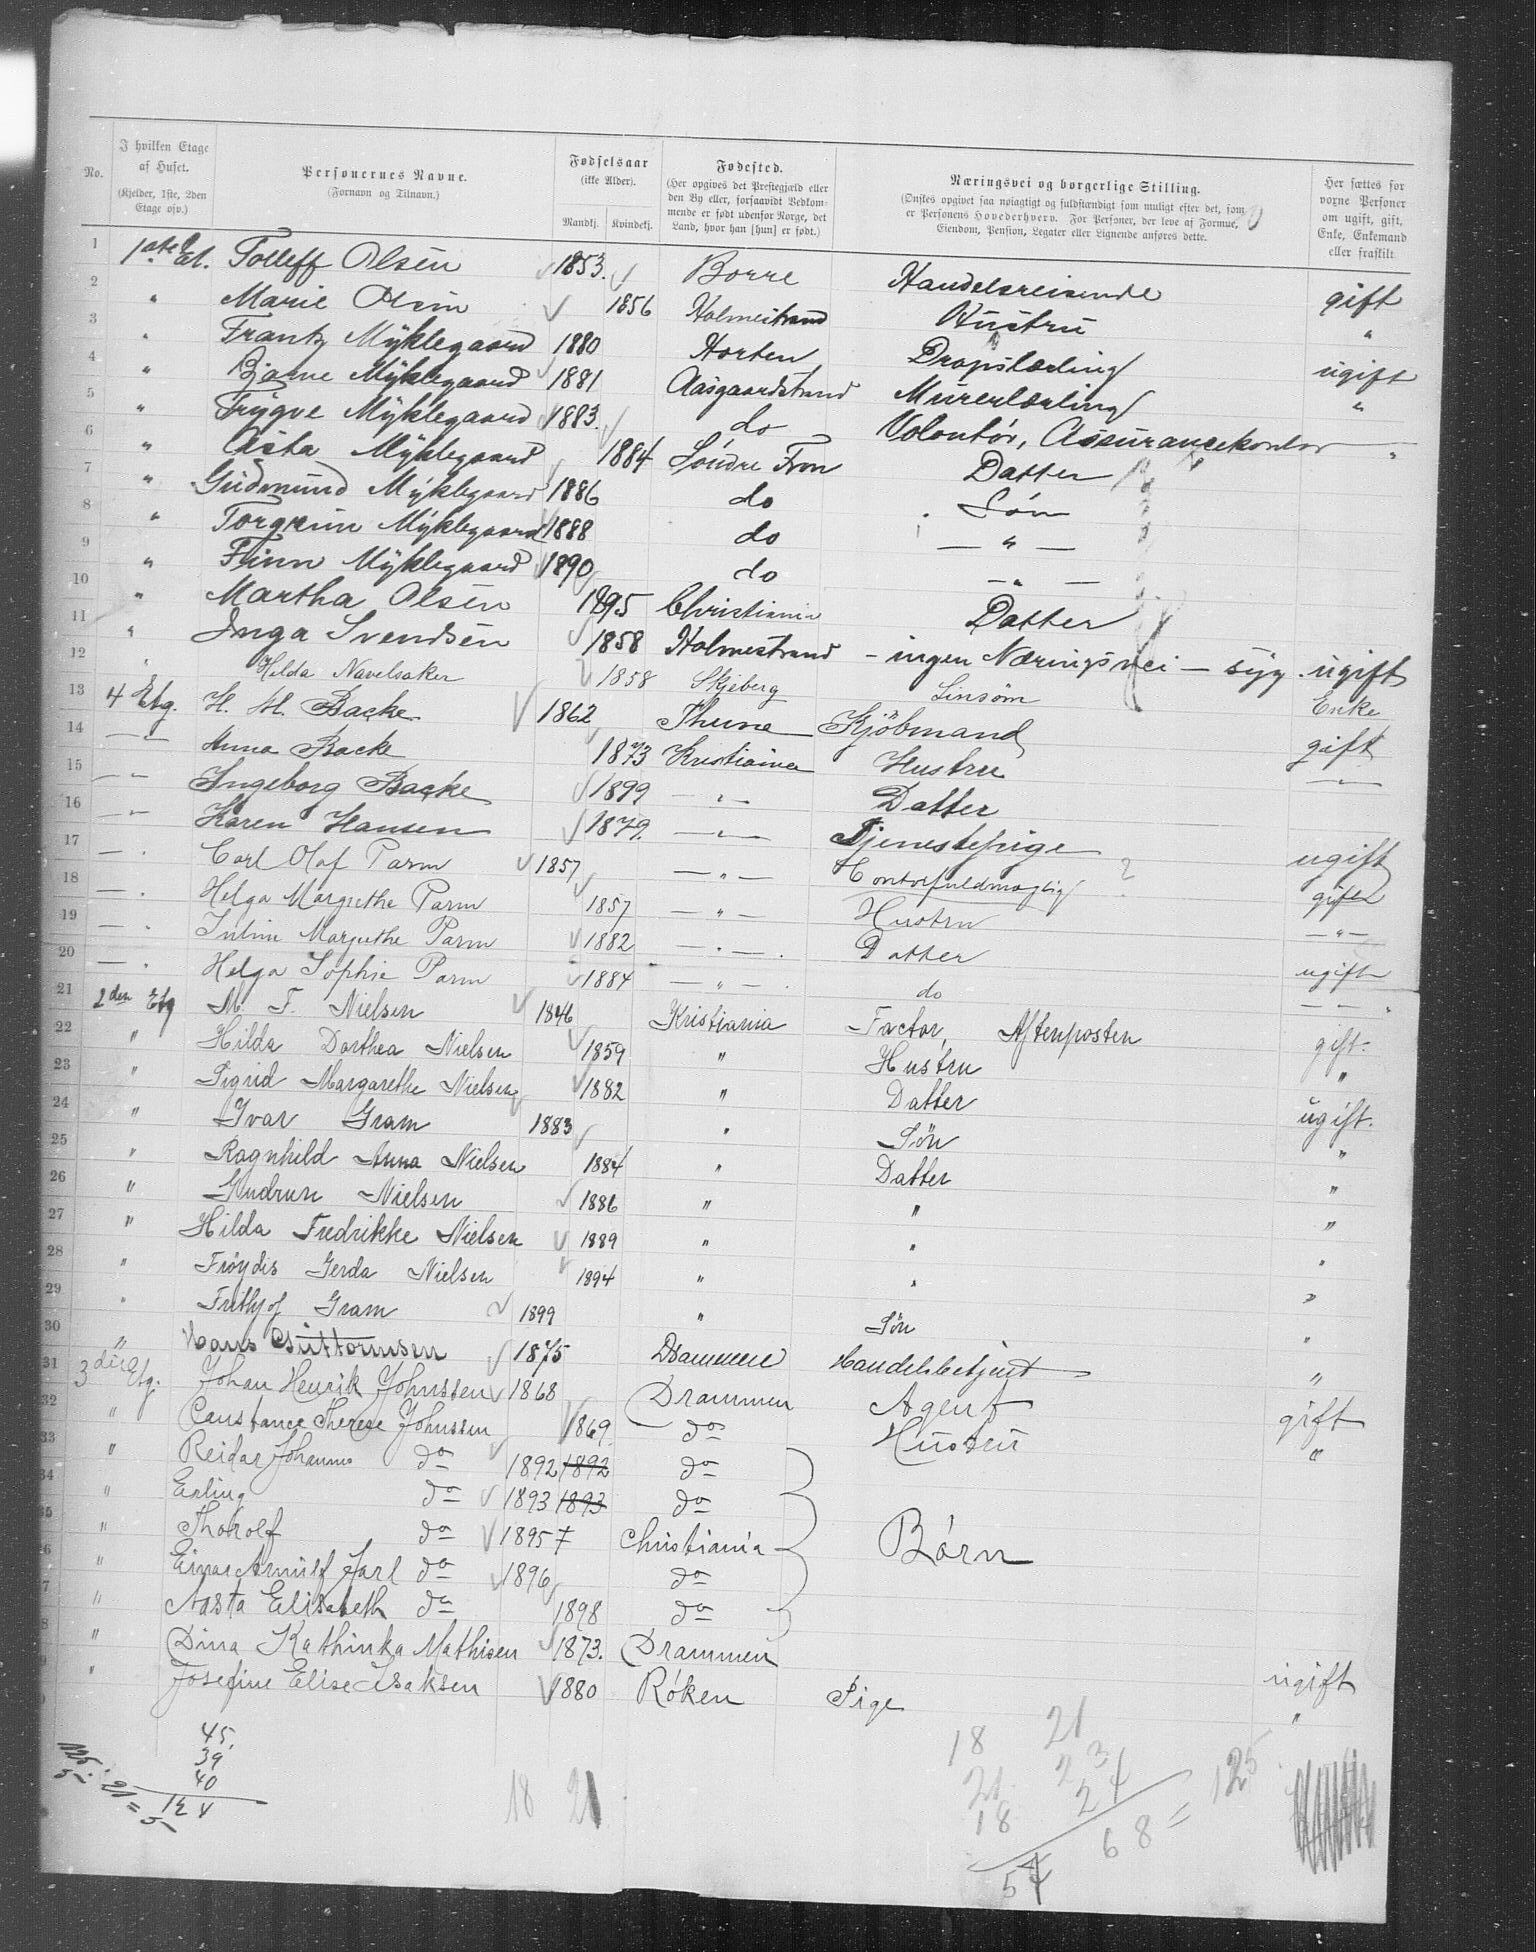 No.
I hvilken Etage af Huset.
(Kjelder, 1ste, 2den Etage osv.)
Personernes Navne.
(Fornavn og Tilnavn.)
Fødselsaar
(ikke Alder).
Mandkj. Kvindekj.
Fødested.
(Her opgives det Prestegjæld eller den By eller, forsaavidt Vedkommende er født udenfor Norge, det Land, hvor han [hun] er født.)
Næringsvei og borgerlige Stilling.
(Ønskes opgivet saa nøiagtigt og fuldstændigt som muligt efter det, som er Personens Hovederhverv. For Personer, der leve af Formue, Eiendom, Pension, Legater eller Lignende anføres dette.
Her sættes for voxne Personer om ugift, gift, Enke, Enkemand eller fraskilt.
1 1ste Et. Tolleff Olsen 1853. Borre Handelsreisende gift
2 " Marie Olsen 1856 Holmestrand Hustru "
3 " Frantz Mÿklegaard 1880 Horten Dropslærling ugift
4 " Bjarne Mÿklegaard 1881 Aasgaardstrand Murerlærling "
5 " Trÿgve Mÿklegaard 1883. do Volontør, Assurancekontor "
6 " Asta Mÿklegaard 1884 Søndre Fron Datter
7 " Gudmund Mÿklegaard 1886 do Søn
8 " Torgrim Mÿklegaard 1888 do — " —
9 " Finn Mÿklegaard 1890 do — " —
10 " Martha Olsen 1895 Christiania Datter
11 " Inga Svendsen 1858 Holmestrand - ingen Næringsvei — syg. ugift
12 " Hilda Navelsaker 1858 Skjeberg Linsøm Enke
13 4 Etg. H. H. Backe 1862 Thune Kjöbmand gift
14 — " — Anna Backe 1873 Kristiania Hustru — " —
15 — " — Ingeborg Backe 1899 — " — Datter
16 — " — Karen Hansen 1879. — " — Tjenestepige ugift
17 — " Carl Olaf Parm 1857 — " — Contorfuldmægtig ? gift
18 — " Helga Margrethe Parm 1857 — " — Hustru — " —
19 — " Margrethe Parm 1882 — " — Datter ugift
20 — " Helga Sophie Parm 1884 — " — do — " —
21 2den Etg M. F. Nielsen 1846 Kristiania Factor, Aftenposten gift.
22 " Hilda Dorthea Nielsen 1859 " Hustru "
23 " Sigrid Margarethe Nielsen 1882 " Datter ugift.
24 " Ivar Gram 1883 " Sön "
25 " Ragnhild Anna Nielsen 1884 " Datter "
26 " Gudrun Nielsen 1886 " " "
27 " Hilda Fredrikke Nielsen 1889 " " "
28 " Fröydis Gerda Nielsen 1894 " " "
29 " Frithjof Gram 1899 " Sön "
30 " Hans Guttormsen 1875 Drammen Handelsbetjent "
31 3die Etg. Johan Henrik Johnssen 1868 Drammen Agent gift
32 " Constance Therese Johnssen 1869. do Hustru "
33 " Reidar Johannes do 1892 1892 do
34 " Erling do 1893 1893 do
35 " Thorolf do 1895 Christiania Børn
36 " Einar Arnulf Jarl do 1896 do
37 " Aasta Elisabeth do 1898 do
38 " Dina Kathinka Mathisen 1873. Drammen ugift
39 " Josefine Elise Isaksen 1880 Røken Pige "
45.
39
40
124
125:
5
21 =
5
18 21
18
21
18
57
21
23
24
68 = 125